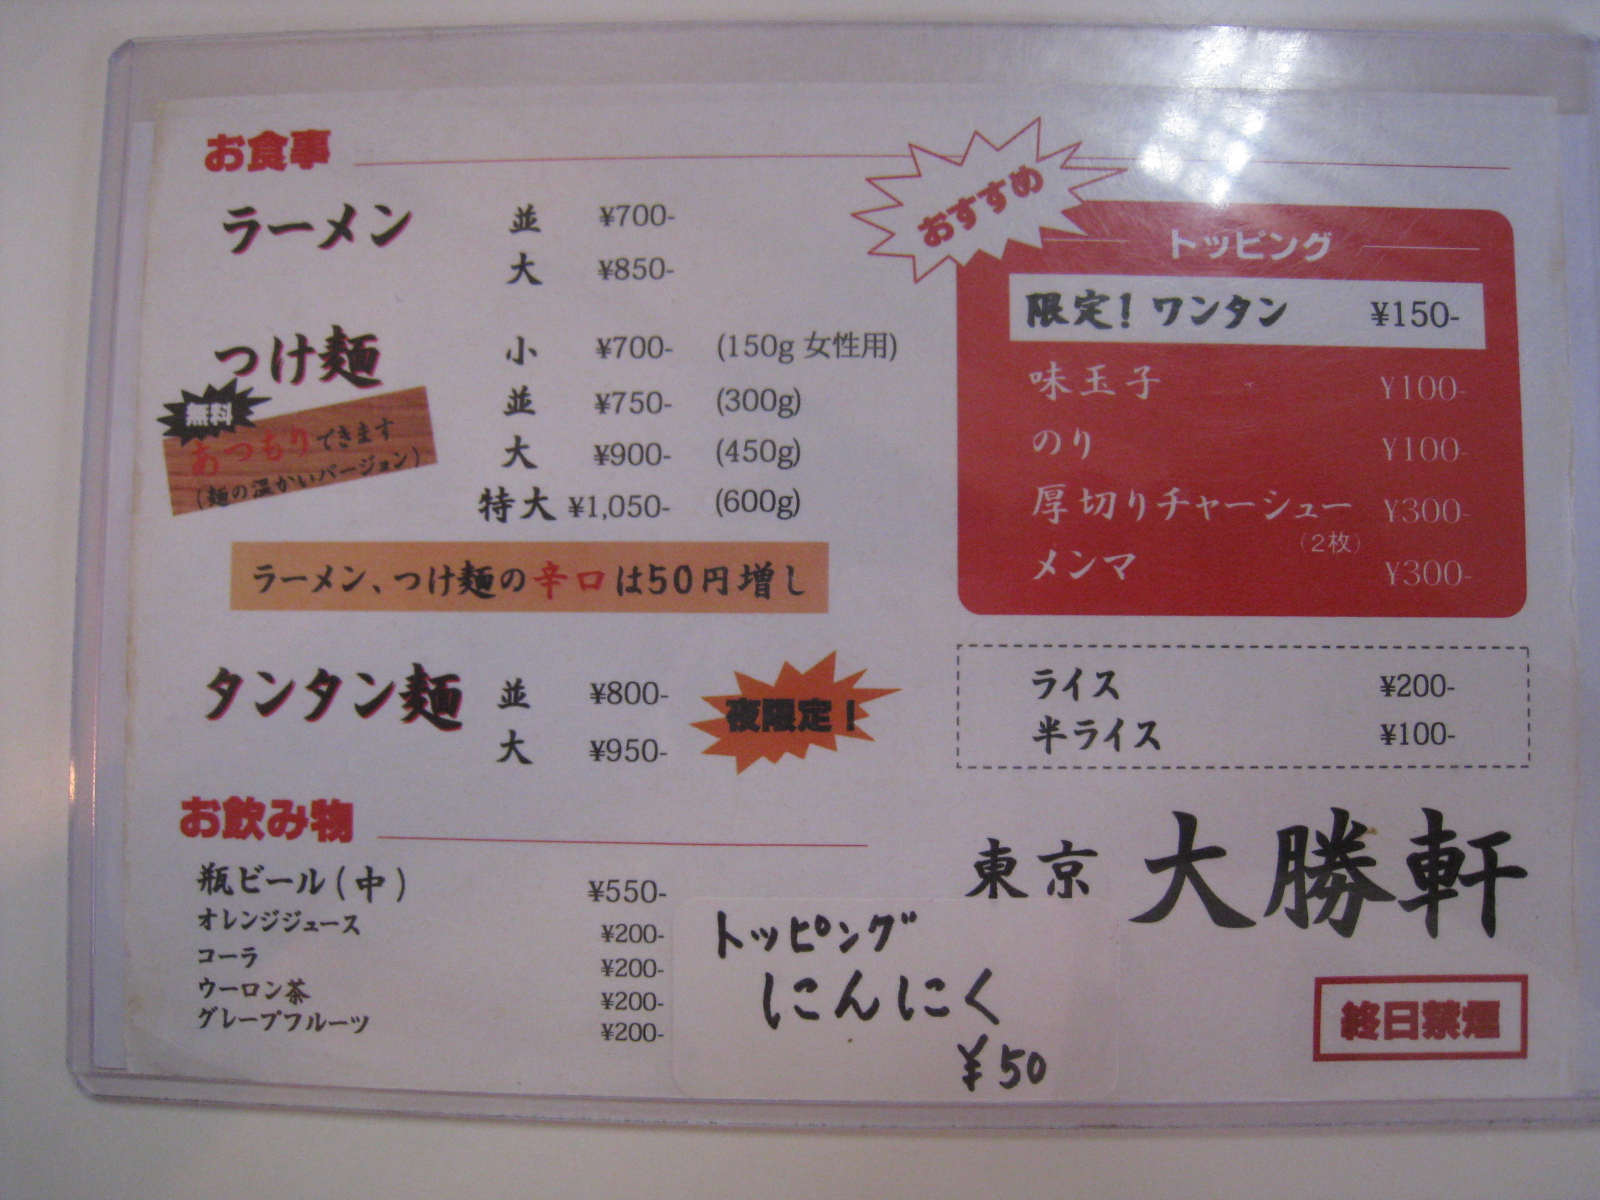 お食事
ラーメン 並 ¥700-
大 ¥850-
つけ麺 小 ¥700- (150g 女性用)
並 ¥750- (300g)
大 ¥900- (450g)
特大 ¥1,050- (600g)
無料
あつもりできます
(麺の温かいバージョン)
ラーメン、つけ麺の辛口は50円増し
タンタン麺 並 ¥800-
大 ¥950-
夜限定!
お飲み物
瓶ビール(中) ¥550-
オレンジジュース ¥200-
コーラ ¥200-
ウーロン茶 ¥200-
グレープフルーツ ¥200-
おすすめ
トッピング
限定!ワンタン ¥150-
味玉子 ¥100-
のり ¥100-
厚切りチャーシュー ¥300-
(2枚)
メンマ ¥300-
ライス ¥200-
半ライス ¥100-
東京 大勝軒
トッピング
にんにく
¥50
終日禁煙